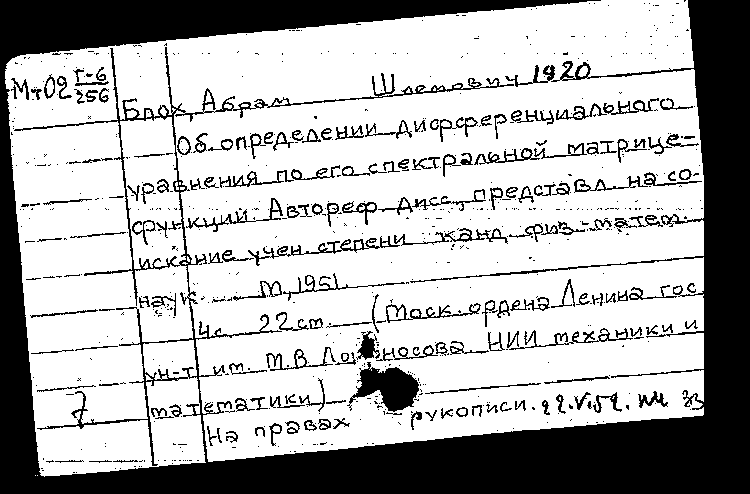 Мт02 Г-6/256
Блох, Абрам Шлемович 1920
Об определении дифференциального
уравнения по его спектральной матрице-
функции. Автореф. дисс., представл. на со-
искание учен. степени канд. физ.-матем.
наук. М., 1951.
4с. 22 см. (Моск. ордена Ленина гос.
ун-т им. М.В. Ломоносова. НИИ механики и
математики)
7.
На правах рукописи. 22.V.52.